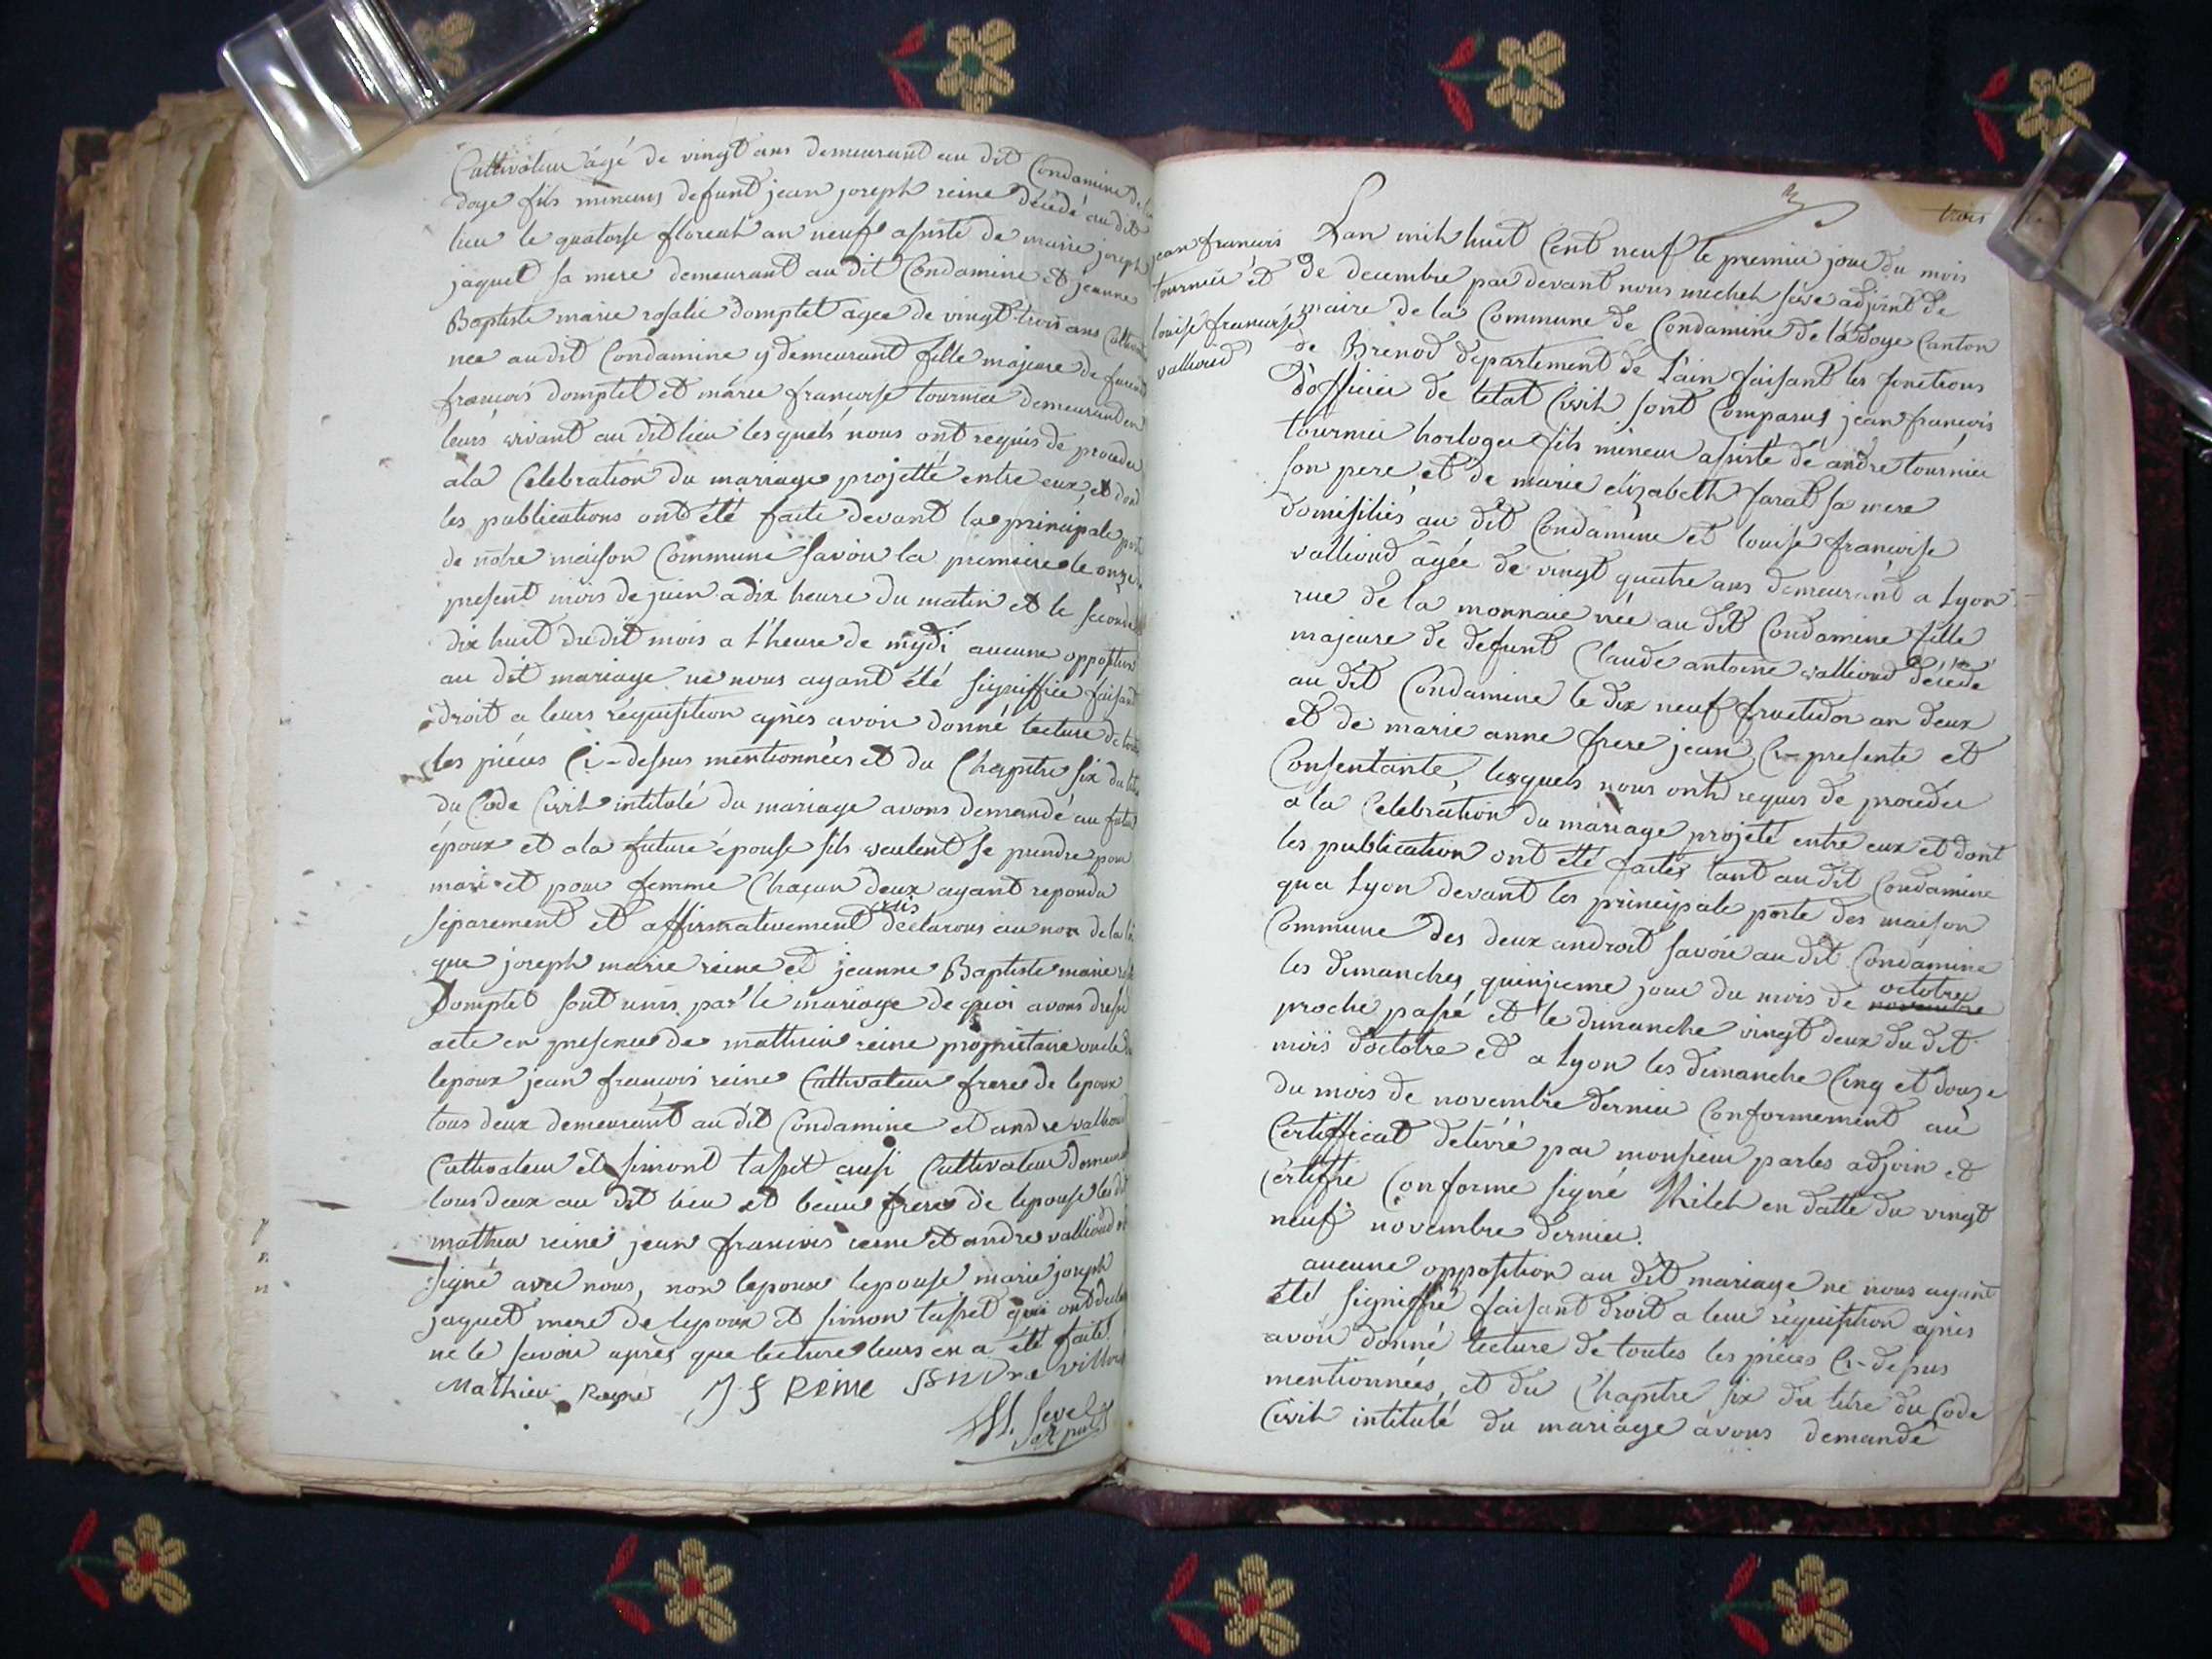 Cultivateur âgé de vingt ans demeurant au dit Condamine de la
doye fils mineurs defunt jean joseph reine décédé au dit
lieu le quatorse floreal an neuf assisté de marie joseph
jaquet sa mere demeurant au dit Condamine et jeanne
Baptiste marie rosalie domptet agee de vingt-trois ans
nee au dit Condamine y demeurant fille majeure de
françois domptet et marie françoise tournier demeurant en
leurs vivant au dit lieu lesquels nous ont requis de proceder
ala Celebration du mariage projetté entre eux, et dont
les publications ont été faite devant la principale porte
de notre maison Commune savoir la premiere le onze
present mois de juin a dix heure du matin et la seconde
dix huit dudit mois a l'heure de mydi aucune opposition
au dit mariage ne nous ayant été signiffiée faisant
droit a leurs requisition après avoir donné lecture de
les pièces Ci-dessus mentionnées et du Chapitre six du
du Code Civil intitulé du mariage avons demandé au futur
époux et ala future épouse s'ils veulent se prendre pour
mari et pour femme Chacun deux ayant repondu
séparement et affirmativement declarons au nom de la loi
que joseph marie reine et jeanne Baptiste marie
Domptet sont unis par le mariage de quoi avons dressé
acte en presence de mathieu reine propriétaire oncle de
lepoux jean françois reine Cultivateur frere de lepoux
tous deux demeurant au dit Condamine et andre vallioud
Cultivateur et simont tasset aussi Cultivateur
tous deux au dit lieu et beau frere de lepouse les dit
mathieu reine jean françois reine et andre vallioud
signé avec nous, non lepoux lepouse marie joseph
jaquet mere de lepoux et simon tasset qui ont
ne le savoir après que lecture leurs en a été faite.
Mathieu J f Reine
M. Seve
trois
jean françois
tournier et
louise françoise
vallioud
Lan mil huit Cent neuf le premier jour du mois
de decembre par devant nous michel seve adjoint de
maire de la Commune de Condamine de la doye Canton
de Brenod departement de Lain faisant les fonctions
d'officier de letat Civil sont Comparus jean françois
tournier horloger fils mineur assisté de andre tournier
son pere, et de marie elizabeth sarat sa mere
domisiliés au dit Condamine et louise françoise
vallioud âgée de vingt quatre ans demeurant a Lyon
rue de la monnaie née au dit Condamine fille
majeure de defunt Claude antoine vallioud décédé
au dit Condamine le dix neuf fructidor an deux
et de marie anne frere jean Ci-presente et
Consentante, lesquels nous ont requis de proceder
a la Celebration du mariage projeté entre eux et dont
les publication ont été faites tant au dit Condamine
qu'a Lyon devant les principale porte des maison
Commune des deux androit savoir au dit Condamine
les dimanches quinzieme jour du mois de novembre octobre
proche passé et le dimanche vingt deux du dit
mois d'octobre et a Lyon les dimanche Cinq et douze
du mois de novembre dernier Conformement au
Certifficat delivré par monsieur parles adjoin et
certiffié Conforme signé en datte du vingt
neuf novembre dernier.
aucune opposition au dit mariage ne nous ayant
été signiffié faisant droit a leur réquisition après
avoir donné lecture de toutes les pièces Ci-dessus
mentionnées, et du Chapitre six du titre du Code
Civil intitulé du mariage avons demandé